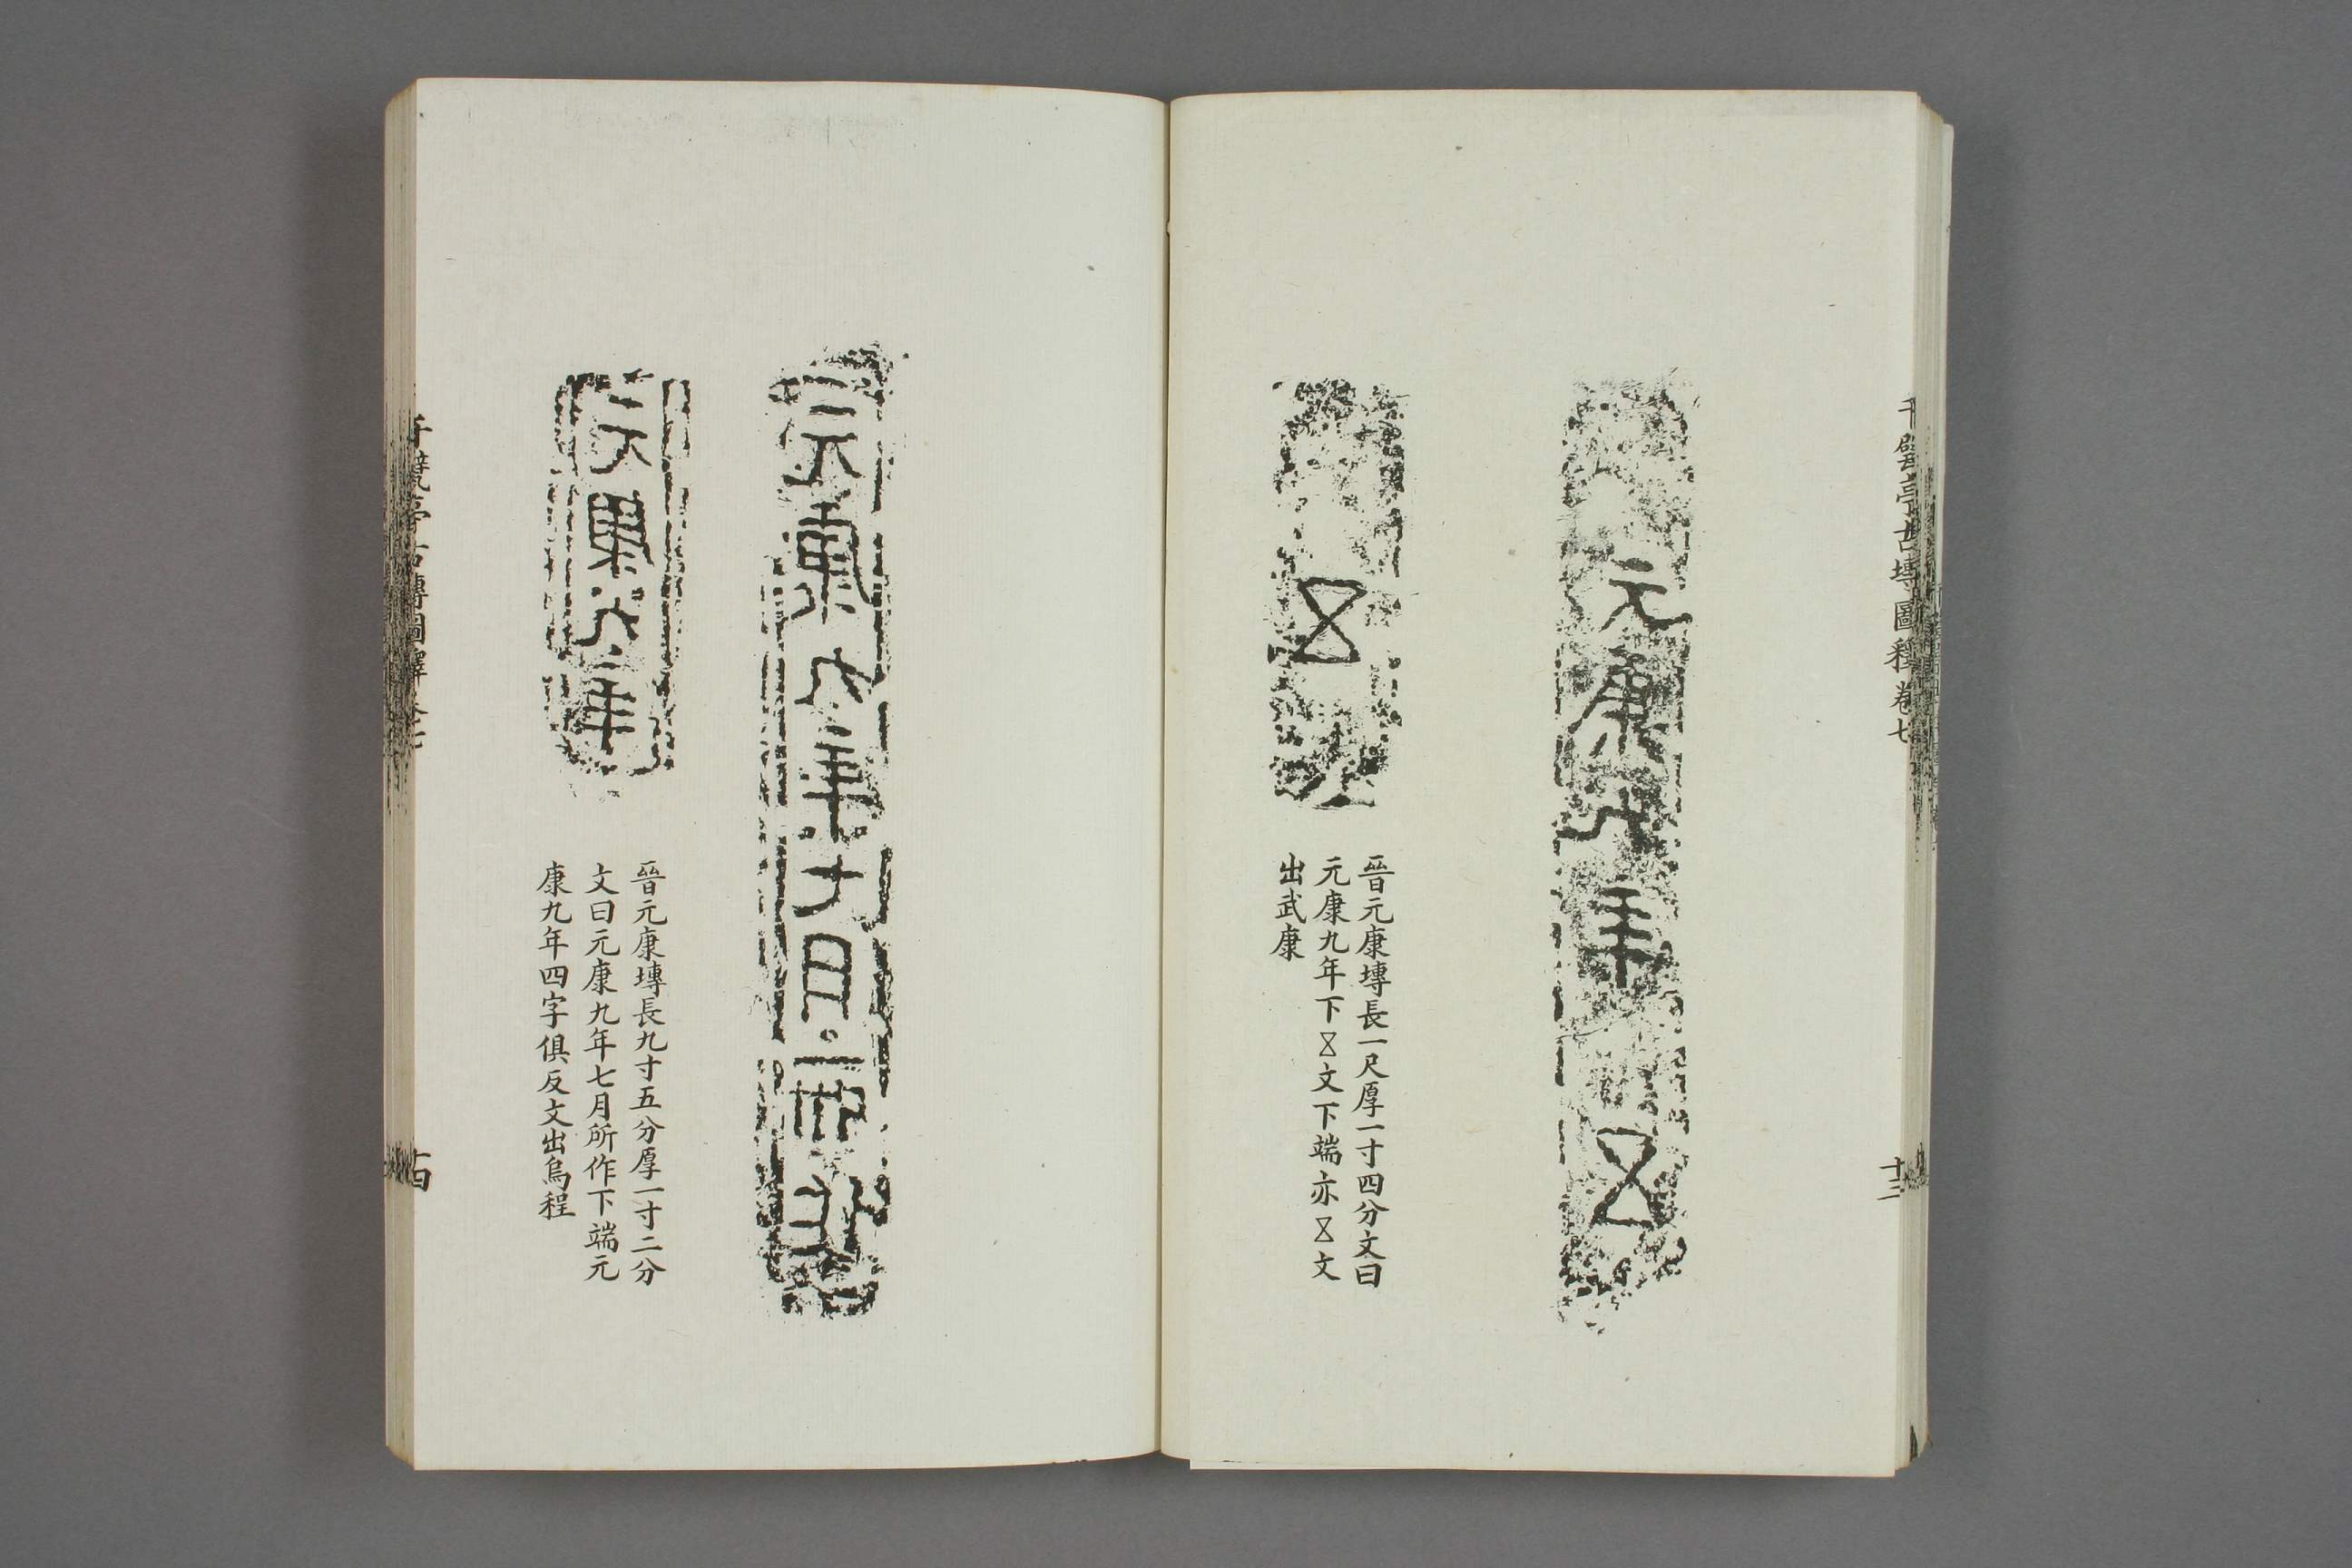 千甓亭古塼圖釋卷七
十三
元康九年㐅
㐅
晉元康塼長一尺厚一寸四分文曰
元康九年下㐅文下端亦㐅文
出武康
元康九年七月所作
元康九年
晉元康塼長九寸五分厚一寸二分
文曰元康九年七月所作下端元
康九年四字俱反文出烏程
千甓亭古塼圖釋卷七
十四